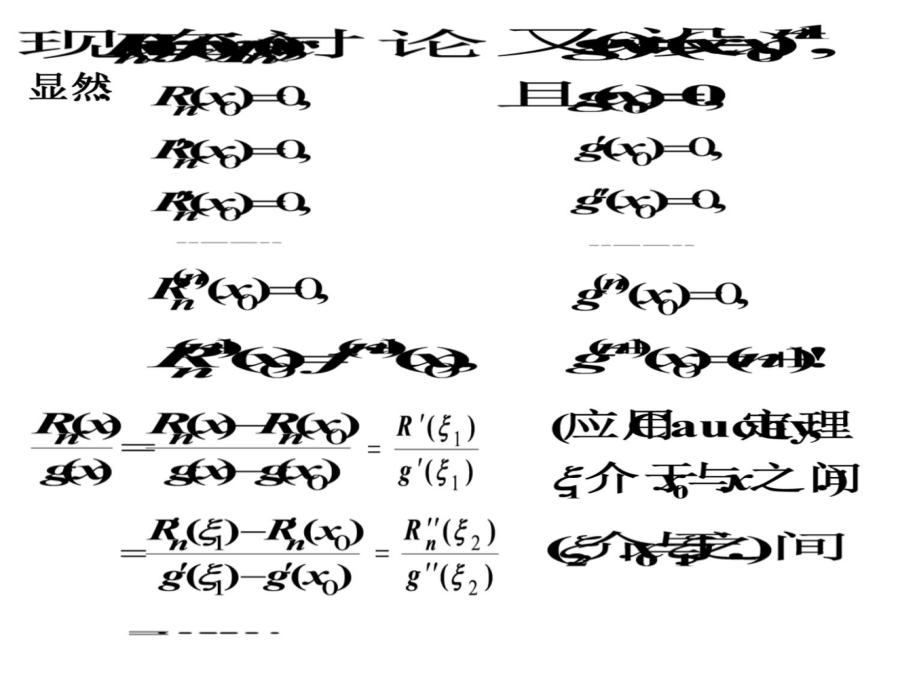 现在讨论 又设
显然: Rₙ(x₀)=0, 且g(x₀)=0,
Rₙ'(x₀)=0, g'(x₀)=0,
Rₙ''(x₀)=0, g''(x₀)=0,
Rₙ⁽ⁿ⁾(x₀)=0, g⁽ⁿ⁾(x₀)=0,
Rₙ⁽ⁿ⁺¹⁾(x₀)=f⁽ⁿ⁺¹⁾(x₀), g⁽ⁿ⁺¹⁾(x₀)=(n+1)!
Rₙ(x)/g(x) = (Rₙ(x)−Rₙ(x₀))/(g(x)−g(x₀)) = R'(ξ₁)/g'(ξ₁) (应用Cauchy定理,
ξ₁介于x₀与x之间)
= (Rₙ'(ξ₁)−Rₙ'(x₀))/(g'(ξ₁)−g'(x₀)) = Rₙ''(ξ₂)/g''(ξ₂) (ξ₂介于x₀与ξ₁之间)